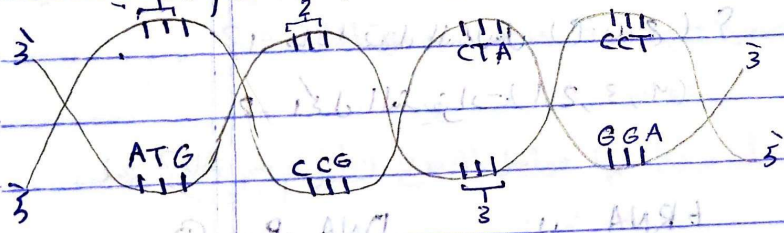 1 2
CTA CCT
3` 3`
ATG CCG GGA
5` 5`
3